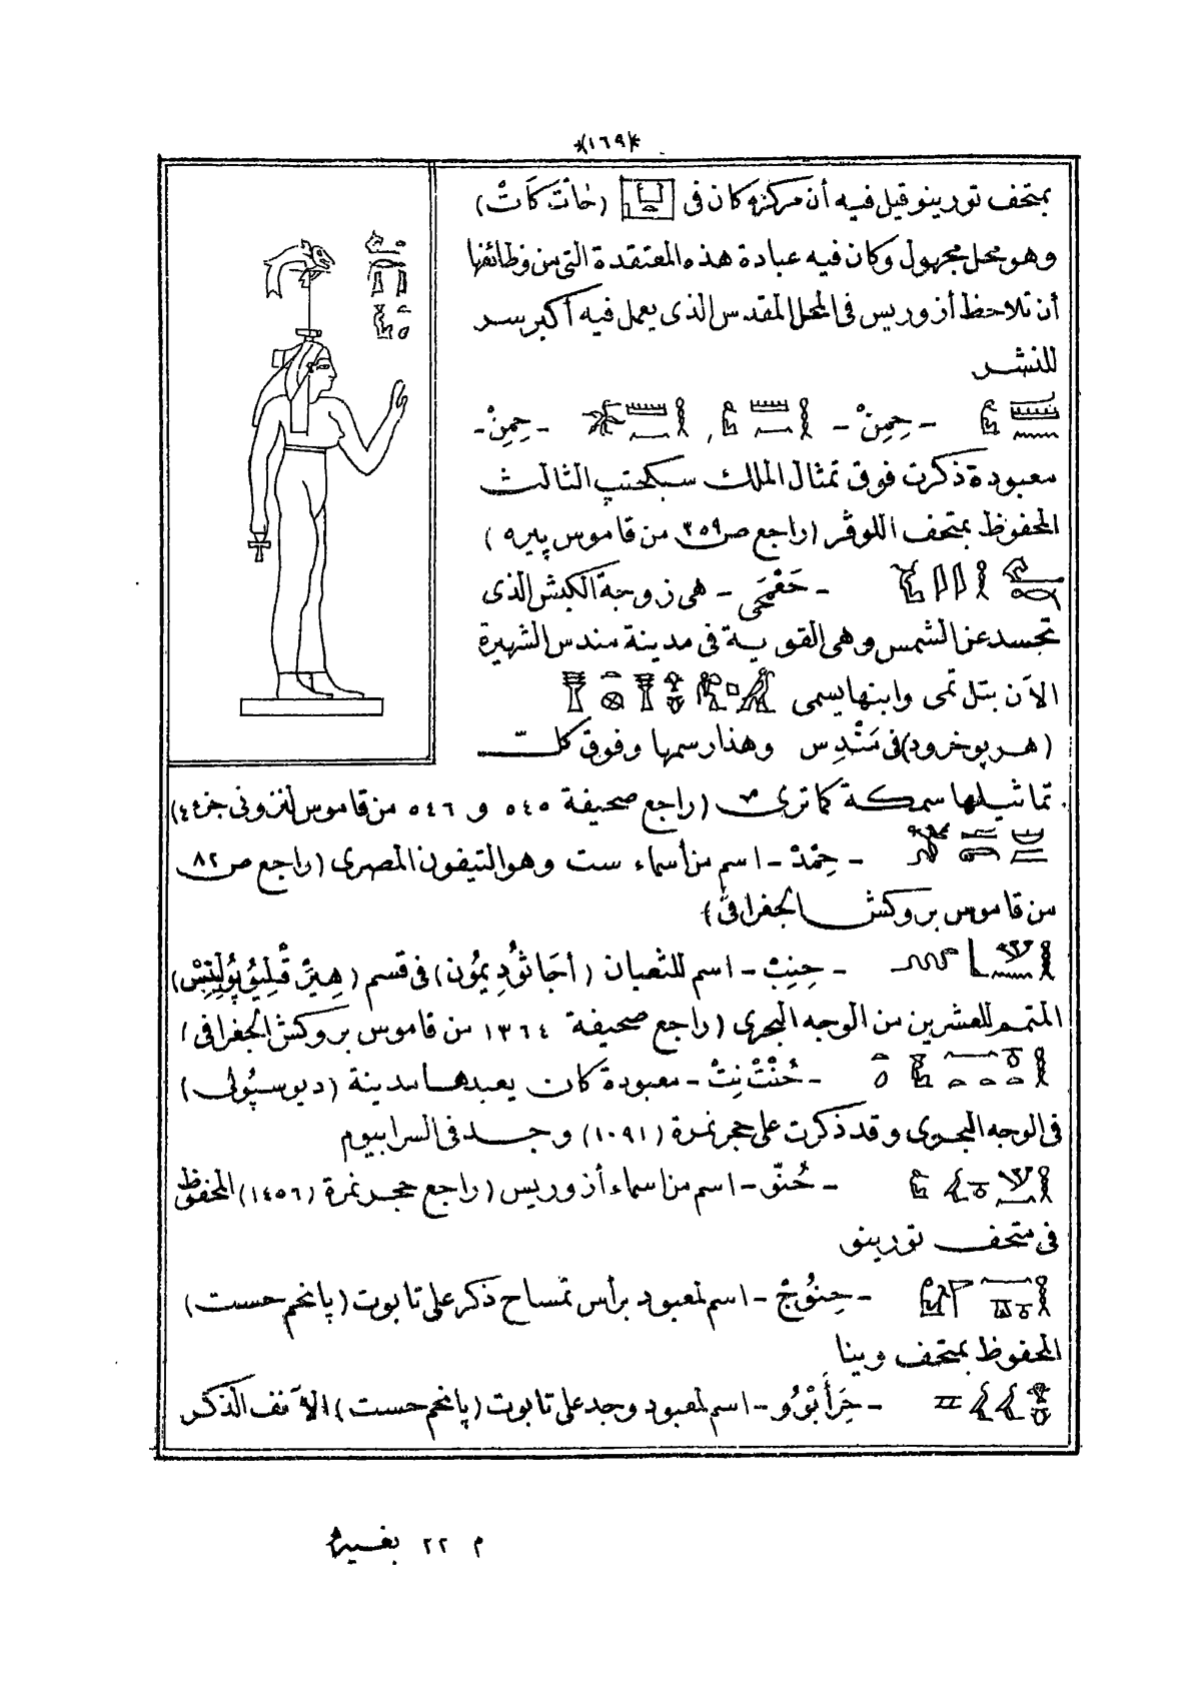 *(١٦٩)*
بمتحف تورينو قيل فيه أن مركزه كان فى (حَاتْ كَاتْ)
وهو محل مجهول وكان فيه عبادة هذه المعتقدة التى من وظائفها
أن تلاحظ أزوريس فى المحل المقدس الذى يعمل فيه أكبر سر
للنشر
- حِمِنْ - , - حِمِنْ -
معبودة ذكرت فوق تمثال الملك سبكحتب الثالث
المحفوظ بمتحف اللوڤر (راجع ص ٣٥٩ من قاموس پيره)
- حَعْمَحَى - هى زوجة الكبش الذى
تجسد عن الشمس وهى القوية فى مدينة مندس الشهيرة
الآن بتل تمى وابنها يسمى
(هر پو خرود) فى مَنْدِس وهذا رسمها وفوق كلّ
تماثيلها سمكة كما ترى (راجع صحيفة ٥٤٥ و ٥٤٦ من قاموس لنزونى جزء ٤)
- حِمْدْ - اسم من أسماء ست وهو التيفون المصرى (راجع ص ٨٢
من قاموس بروكش الجغرافى)
- حِنِبْ - اسم للثعبان (أجَاثُودِيمُون) فى قسم
المتمم للعشرين من الوجه البحرى (راجع صحيفة ١٣٦٤ من قاموس بروكش الجغرافى)
- حُنْتْ نِتْ - معبودة كان يعبدها مدينة (ديوسپُولى)
فى الوجه البحرى وقد ذكرت على حجر نمرة (١٠٩١) وجد فى السرابيوم
- حُنّو - اسم من اسماء أزوريس (راجع حجر نمرة (١٤٥٦) المحفوظ
فى متحف تورينو
- حِنُوجْ - اسم لمعبود برأس تمساح ذكر على تابوت (پانحم حست)
المحفوظ بمتحف وينا
- اسم لمعبود وجد على تابوت (پانحم حست) الآنف الذكر
م ٢٢